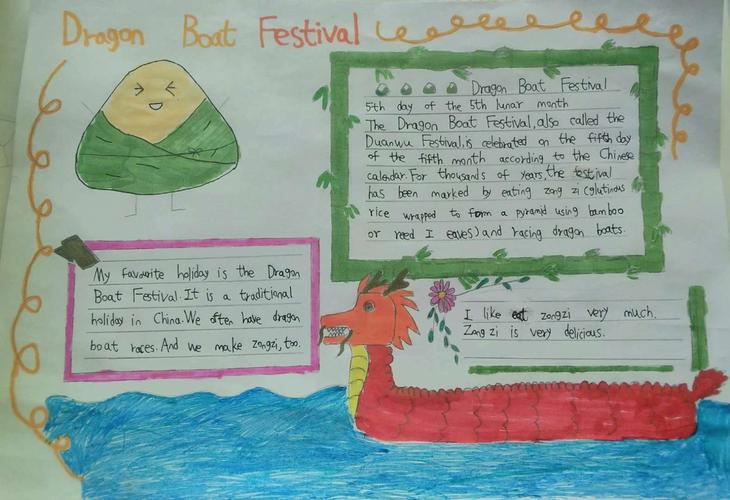 Dragon Boat Festival
Dragon Boat Festival
5th day of the 5th lunar month
The Dragon Boat Festival,also called the
Duanwu Festival,is celebrated on the fifth day
of the fifth month according to the Chinese
calendar.For thousands of years,the festival
has been marked by eating zong zi(glutinous
rice wrapped to form a pyramid using bamboo
or reed I eaves)and racing dragon boats.
My favourite holiday is the Dragon
Boat Festival.It is a traditional
holiday in China.We often have dragon
boat races.And we make zongzi,too.
I like eat zongzi very much.
Zongzi is very delicious.